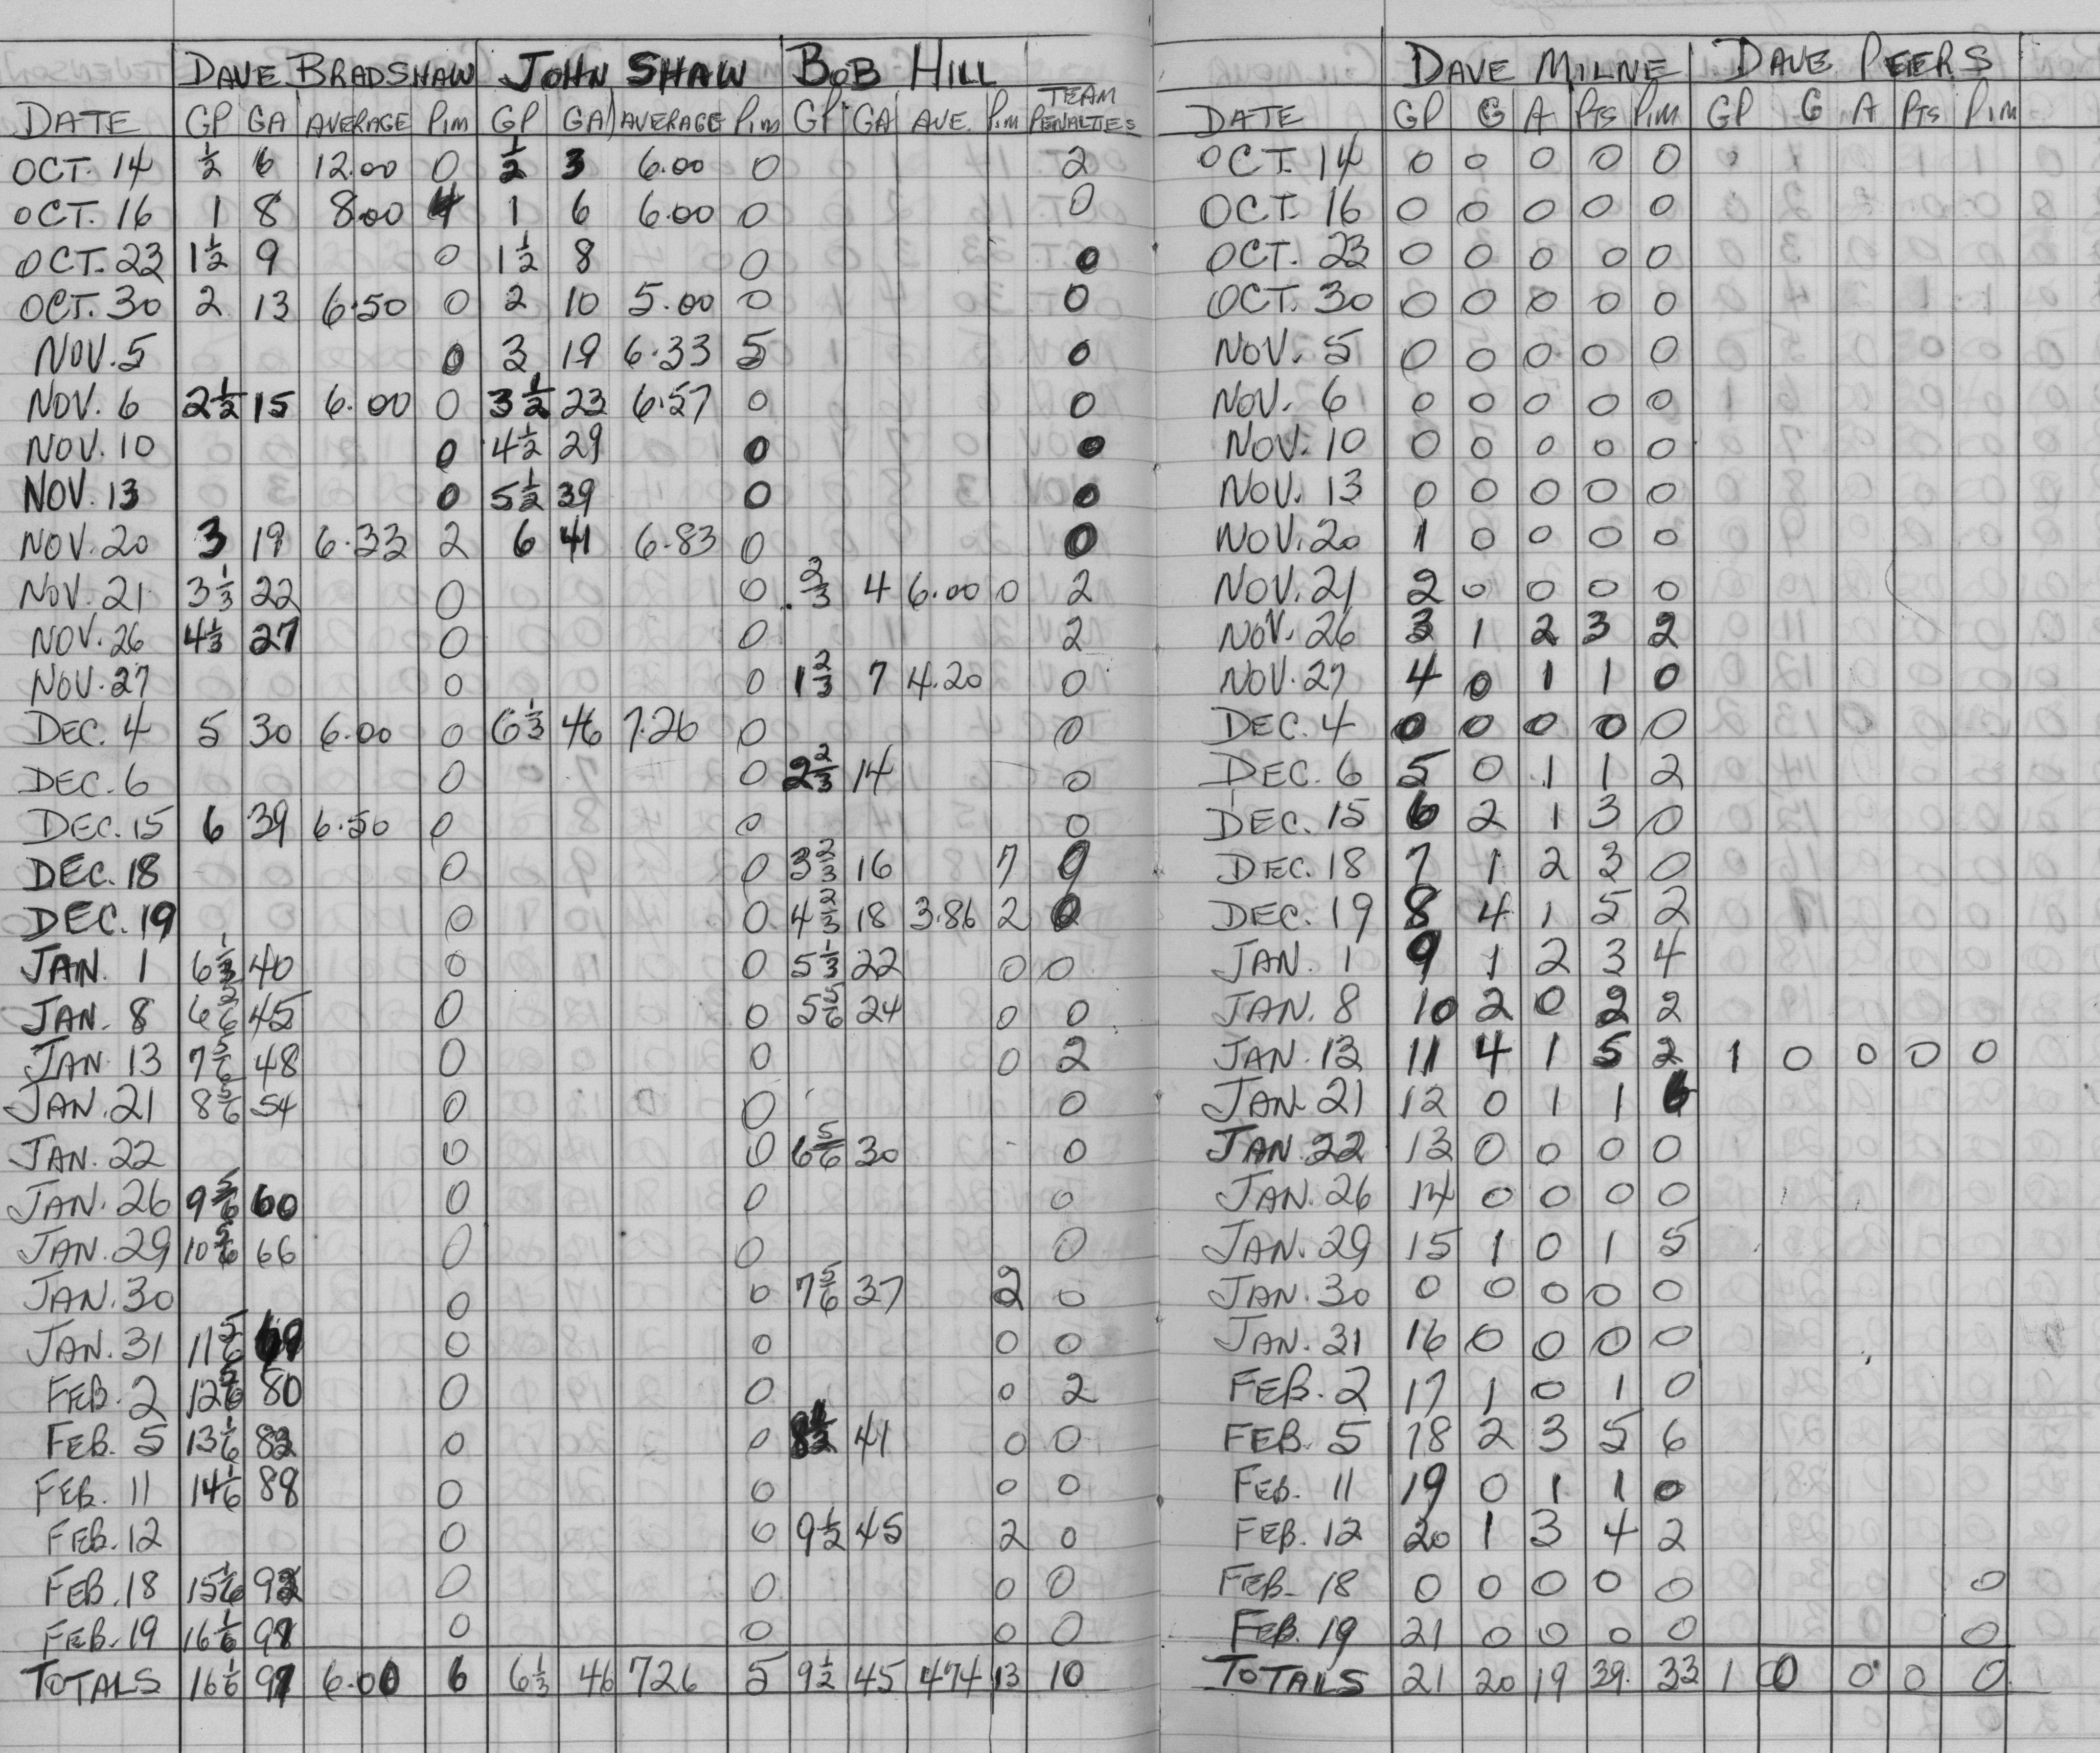 DAVE BRADSHAW JOHN SHAW BOB HILL
DATE GP GA AVERAGE PIM GP GA AVERAGE PIM GP GA AVE. PIM TEAM PENALTIES
OCT. 14 ½ 6 12.00 0 ½ 3 6.00 0 2
OCT. 16 1 8 8.00 4 1 6 6.00 0 0
OCT. 23 1½ 9 0 1½ 8 0 0
OCT. 30 2 13 6.50 0 2 10 5.00 0 0
NOV. 5 0 3 19 6.33 5 0
NOV. 6 2½ 15 6.00 0 3½ 23 6.57 0 0
NOV. 10 0 4½ 29 0 0
NOV. 13 0 5½ 39 0 0
NOV. 20 3 19 6.33 2 6 41 6.83 0 0
NOV. 21 3⅓ 22 0 0 ⅔ 4 6.00 0 2
NOV. 26 4⅓ 27 0 0 2
NOV. 27 0 0 1⅔ 7 4.20 0
DEC. 4 5 30 6.00 0 6⅓ 46 7.26 0 0
DEC. 6 0 0 2⅔ 14 0
DEC. 15 6 39 6.50 0 0 0
DEC. 18 0 0 3⅔ 16 7 0
DEC. 19 0 0 4⅔ 18 3.86 2 0
JAN. 1 6⅓ 40 0 0 5⅓ 22 0 0
JAN. 8 6 45 0 0 5⅚ 24 0 0
JAN. 13 7⅚ 48 0 0 0 2
JAN. 21 8⅚ 54 0 0 0
JAN. 22 0 0 6⅚ 30 0
JAN. 26 9⅚ 60 0 0 0
JAN. 29 10⅚ 66 0 0 0
JAN. 30 0 0 7⅚ 37 2 0
JAN. 31 11⅚ 69 0 0 0 0
FEB. 2 12⅚ 80 0 0 0 2
FEB. 5 13⅙ 82 0 0 8½ 41 0 0
FEB. 11 14⅙ 88 0 0 0 0
FEB. 12 0 0 9½ 45 2 0
FEB. 18 15⅙ 92 0 0 0 0
FEB. 19 16⅙ 97 0 0 0 0
TOTALS 16⅙ 97 6.00 6 6⅓ 46 726 5 9½ 45 474 13 10
DAVE MILNE DAVE PEERS
DATE GP G A PTS PIM GP G A PTS PIM
OCT. 14 0 0 0 0 0
OCT. 16 0 0 0 0 0
OCT. 23 0 0 0 0 0
OCT. 30 0 0 0 0 0
NOV. 5 0 0 0 0 0
NOV. 6 0 0 0 0 0
NOV. 10 0 0 0 0 0
NOV. 13 0 0 0 0 0
NOV. 20 1 0 0 0 0
NOV. 21 2 0 0 0 0
NOV. 26 3 1 2 3 2
NOV. 27 4 0 1 1 0
DEC. 4 0 0 0 0 0
DEC. 6 5 0 1 1 2
DEC. 15 6 2 1 3 0
DEC. 18 7 1 2 3 0
DEC. 19 8 4 1 5 2
JAN. 1 9 1 2 3 4
JAN. 8 10 2 0 2 2
JAN. 13 11 4 1 5 2 1 0 0 0 0
JAN. 21 12 0 1 1 6
JAN. 22 13 0 0 0 0
JAN. 26 14 0 0 0 0
JAN. 29 15 1 0 1 5
JAN. 30 0 0 0 0 0
JAN. 31 16 0 0 0 0
FEB. 2 17 1 0 1 0
FEB. 5 18 2 3 5 6
FEB. 11 19 0 1 1 0
FEB. 12 20 1 3 4 2
FEB. 18 0 0 0 0 0 0
FEB. 19 21 0 0 0 0 0
TOTALS 21 20 19 39. 33 1 0 0 0 0